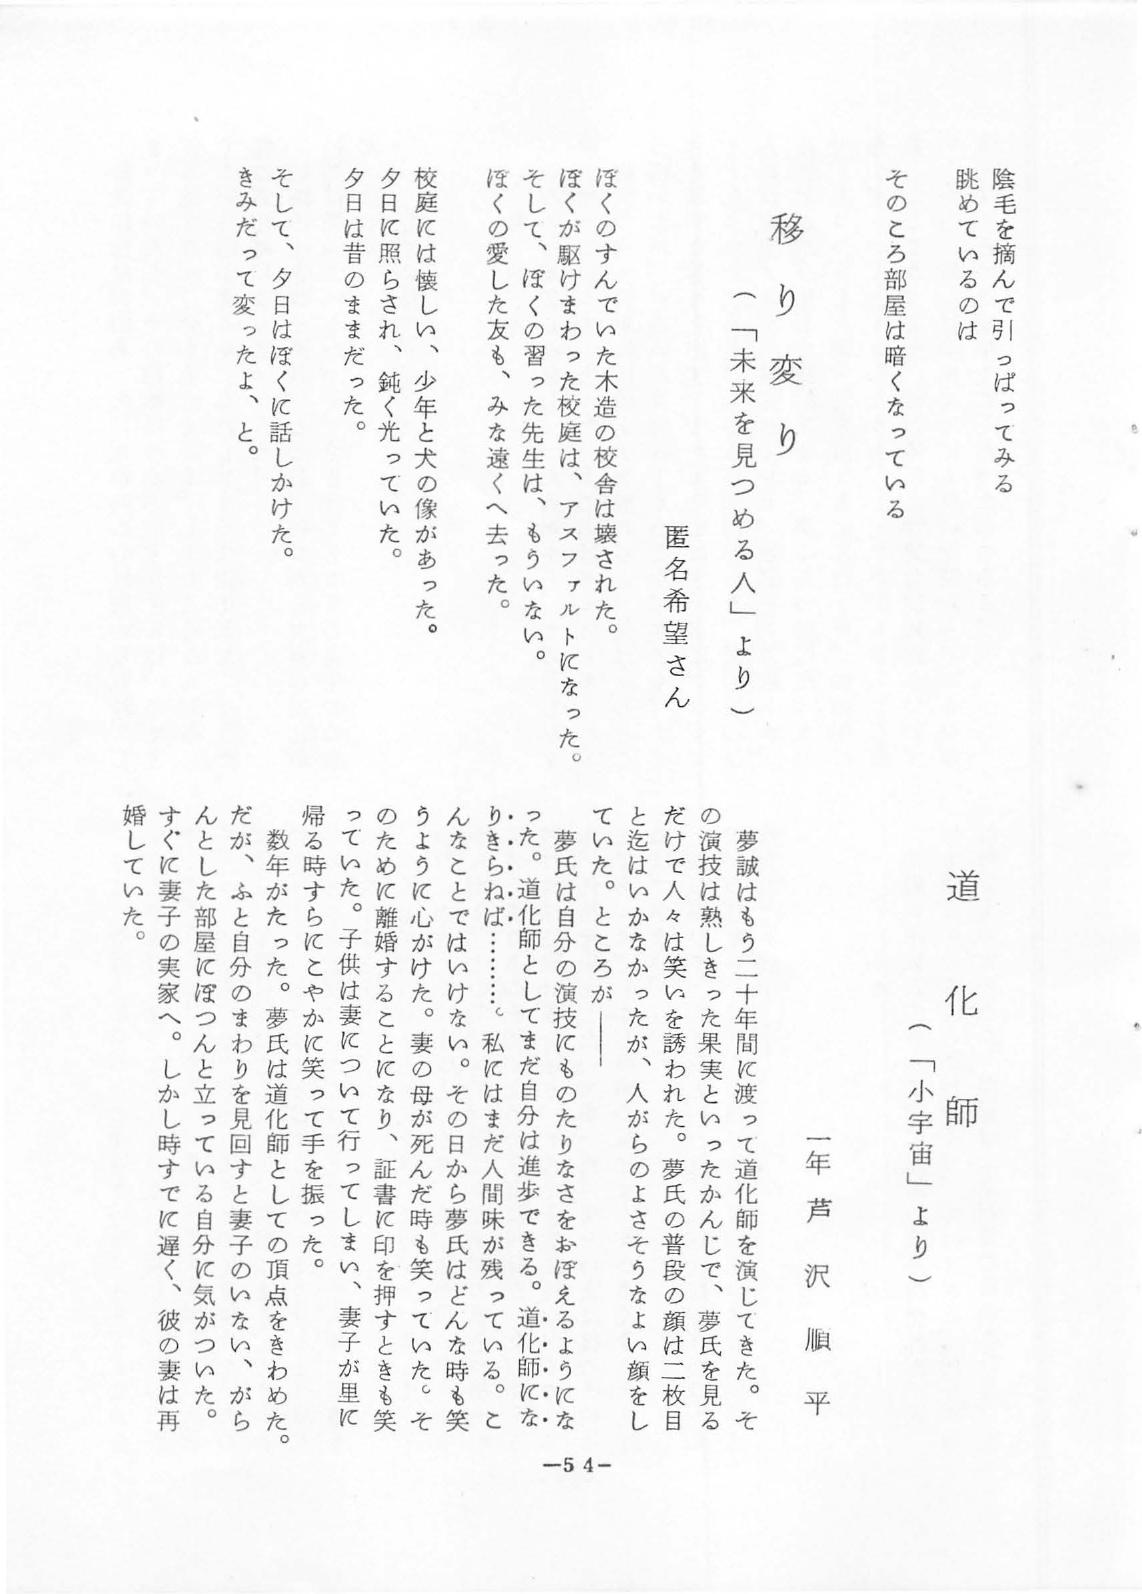 陰毛を摘んで引っぱってみる
眺めているのは
そのころ部屋は暗くなっている
移り変り
（「未来を見つめる人」より）
匿名希望さん
ぼくのすんでいた木造の校舎は壊された。
ぼくが駆けまわった校庭は、アスファルトになった。
そして、ぼくの習った先生は、もういない。
ぼくの愛した友も、みな遠くへ去った。
校庭には懐しい、少年と犬の像があった。
夕日に照らされ、鈍く光っていた。
夕日は昔のままだった。
そして、夕日はぼくに話しかけた。
きみだって変ったよ、と。
道化師
（「小宇宙」より）
一年 芦沢順平
夢誠はもう二十年間に渡って道化師を演じてきた。そ
の演技は熟しきった果実といったかんじで、夢氏を見る
だけで人々は笑いを誘われた。夢氏の普段の顔は二枚目
と迄はいかなかったが、人がらのよさそうなよい顔をし
ていた。ところが――
夢氏は自分の演技にものたりなさをおぼえるようにな
った。道化師としてまだ自分は進歩できる。道化師にな
りきらねば………。私にはまだ人間味が残っている。こ
んなことではいけない。その日から夢氏はどんな時も笑
うように心がけた。妻の母が死んだ時も笑っていた。そ
のために離婚することになり、証書に印を押すときも笑
っていた。子供は妻について行ってしまい、妻子が里に
帰る時すらにこやかに笑って手を振った。
数年がたった。夢氏は道化師としての頂点をきわめた。
だが、ふと自分のまわりを見回すと妻子のいない、がら
んとした部屋にぽつんと立っている自分に気がついた。
すぐに妻子の実家へ。しかし時すでに遅く、彼の妻は再
婚していた。
—54—